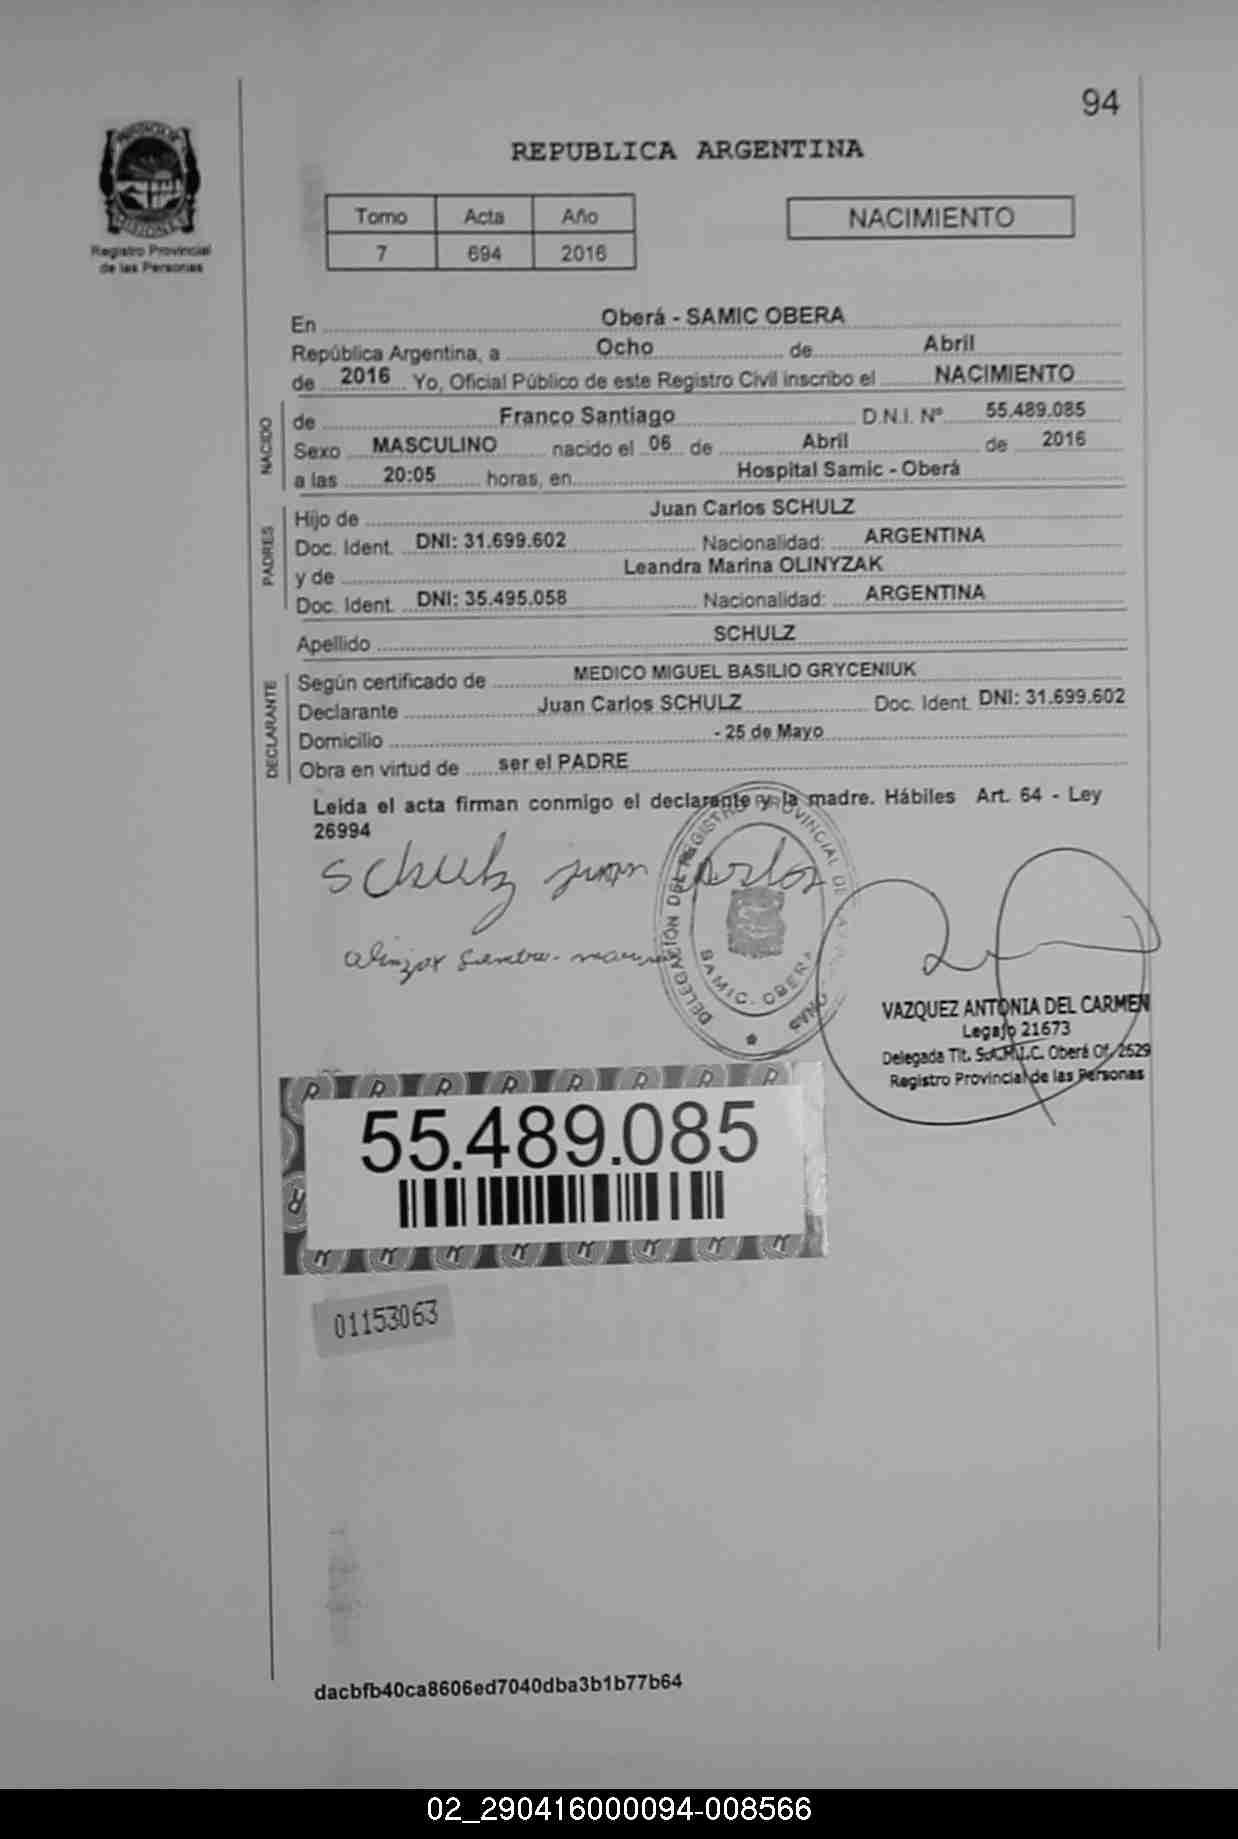 94
REPUBLICA ARGENTINA
PROVINCIA DE MISIONES
Registro Provincial
de las Personas
Tomo Acta Año
7 694 2016
NACIMIENTO
En Oberá - SAMIC OBERA
República Argentina, a Ocho de Abril
de 2016 Yo, Oficial Público de este Registro Civil inscribo el NACIMIENTO
NACIDO
de Franco Santiago D.N.I. Nº 55.489.085
Sexo MASCULINO nacido el 06 de Abril de 2016
a las 20:05 horas, en Hospital Samic - Oberá
PADRES
Hijo de Juan Carlos SCHULZ
Doc. Ident. DNI: 31.699.602 Nacionalidad: ARGENTINA
y de Leandra Marina OLINYZAK
Doc. Ident. DNI: 35.495.058 Nacionalidad: ARGENTINA
Apellido SCHULZ
DECLARANTE
Según certificado de MEDICO MIGUEL BASILIO GRYCENIUK
Declarante Juan Carlos SCHULZ Doc. Ident. DNI: 31.699.602
Domicilio - 25 de Mayo
Obra en virtud de ser el PADRE
Leída el acta firman conmigo el declarante y la madre. Hábiles Art. 64 - Ley
26994
Schulz juan carlos
DELEGACIÓN DEL REGISTRO PROVINCIAL DE
SAMIC. OBERA
VAZQUEZ ANTONIA DEL CARMEN
Legajo 21673
Delegada Tit. S.A.M.I.C. Oberá Of. 2629
Registro Provincial de las Personas
55.489.085
01153063
dacbfb40ca8606ed7040dba3b1b77b64
02_290416000094-008566